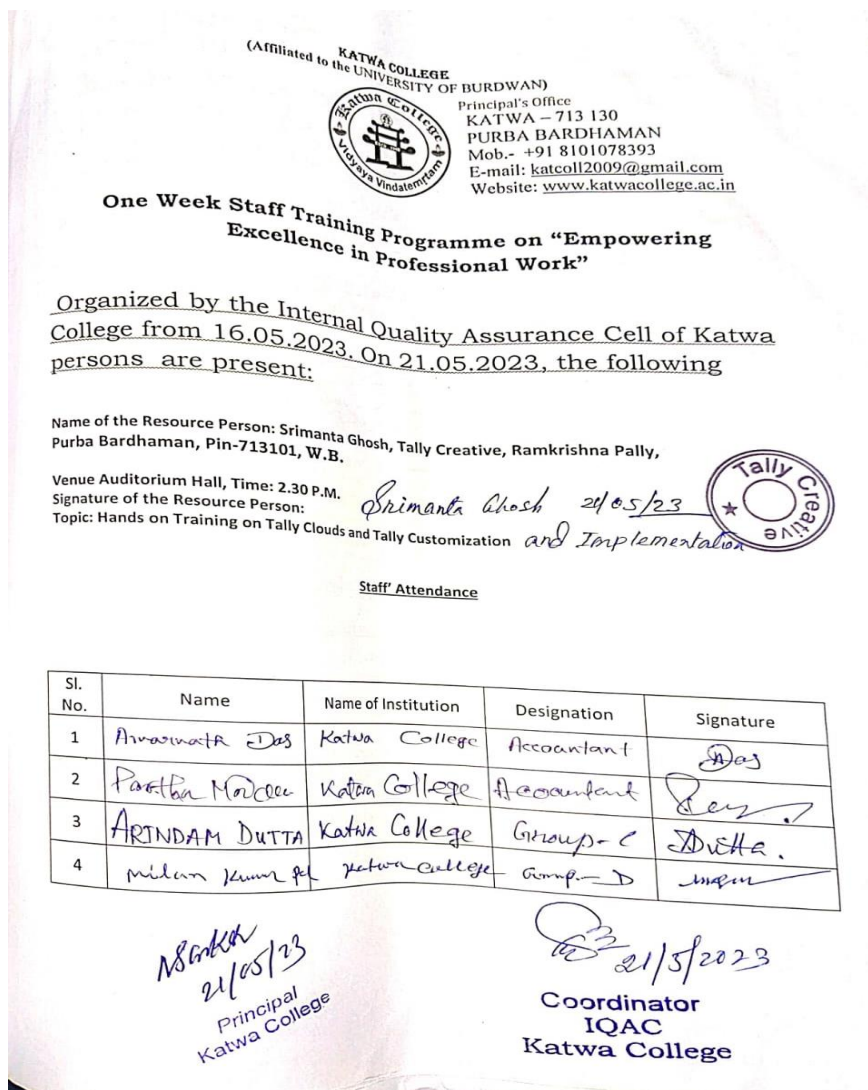 KATWA COLLEGE
(Affiliated to the UNIVERSITY OF BURDWAN)
Katwa College
Vidyaya Vindatemrtam
Principal's Office
KATWA – 713 130
PURBA BARDHAMAN
Mob.- +91 8101078393
E-mail: katcoll2009@gmail.com
Website: www.katwacollege.ac.in
One Week Staff Training Programme on “Empowering
Excellence in Professional Work”
Organized by the Internal Quality Assurance Cell of Katwa
College from 16.05.2023. On 21.05.2023, the following
persons are present:
Name of the Resource Person: Srimanta Ghosh, Tally Creative, Ramkrishna Pally,
Purba Bardhaman, Pin-713101, W.B.
Venue Auditorium Hall, Time: 2.30 P.M.
Signature of the Resource Person: Srimanta Ghosh 21/05/23
Tally Creative
Topic: Hands on Training on Tally Clouds and Tally Customization and Implementation
Staff' Attendance
Sl. No. Name Name of Institution Designation Signature
1 Amarnath Das Katwa College Accountant Das
2 Partha Katwa College Accountant
3 ARINDAM DUTTA Katwa College Group-C Dutta.
4 Milan Kumar Katwa College Group-D
NSarkar
21/05/23
Principal
Katwa College
21/5/2023
Coordinator
IQAC
Katwa College